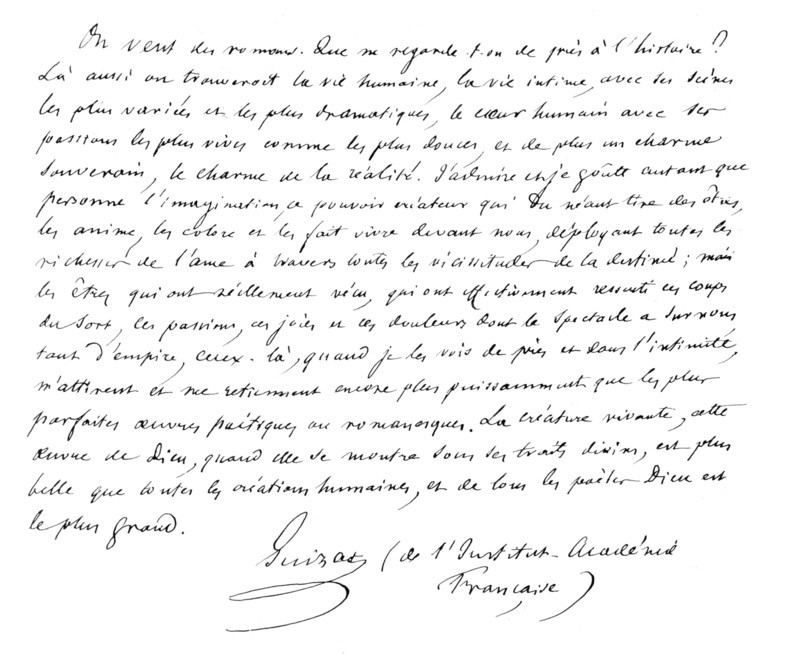 On veut des romans. Que ne regarde-t-on de près à l'histoire?
Là aussi on trouveroit la vie humaine, la vie intime, avec ses scènes
les plus variées et les plus dramatiques, le cœur humain avec ses
passions les plus vives comme les plus douces, et de plus un charme
souverain, le charme de la réalité. J'admire et je goûte autant que
personne l'imagination, ce pouvoir créateur qui du néant tire des êtres,
les anime, les colore et les fait vivre devant nous, déployant toutes les
richesses de l'ame à travers toutes les vicissitudes de la destinée; mais
les êtres qui ont réellement vécu, qui ont effectivement ressenti ces coups
du sort, ces passions, ces joies et ces douleurs dont le spectacle a sur nous
tant d'empire, ceux-là, quand je les vois de près et dans l'intimité,
m'attirent et me retiennent encore plus puissamment que les plus
parfaites œuvres poétiques ou romanesques. La créature vivante, cette
œuvre de Dieu, quand elle se montre sous ses traits divins, est plus
belle que toutes les créations humaines, et de tous les poëtes Dieu est
le plus grand.
Guizot (de l'Institut-Académie
Française)